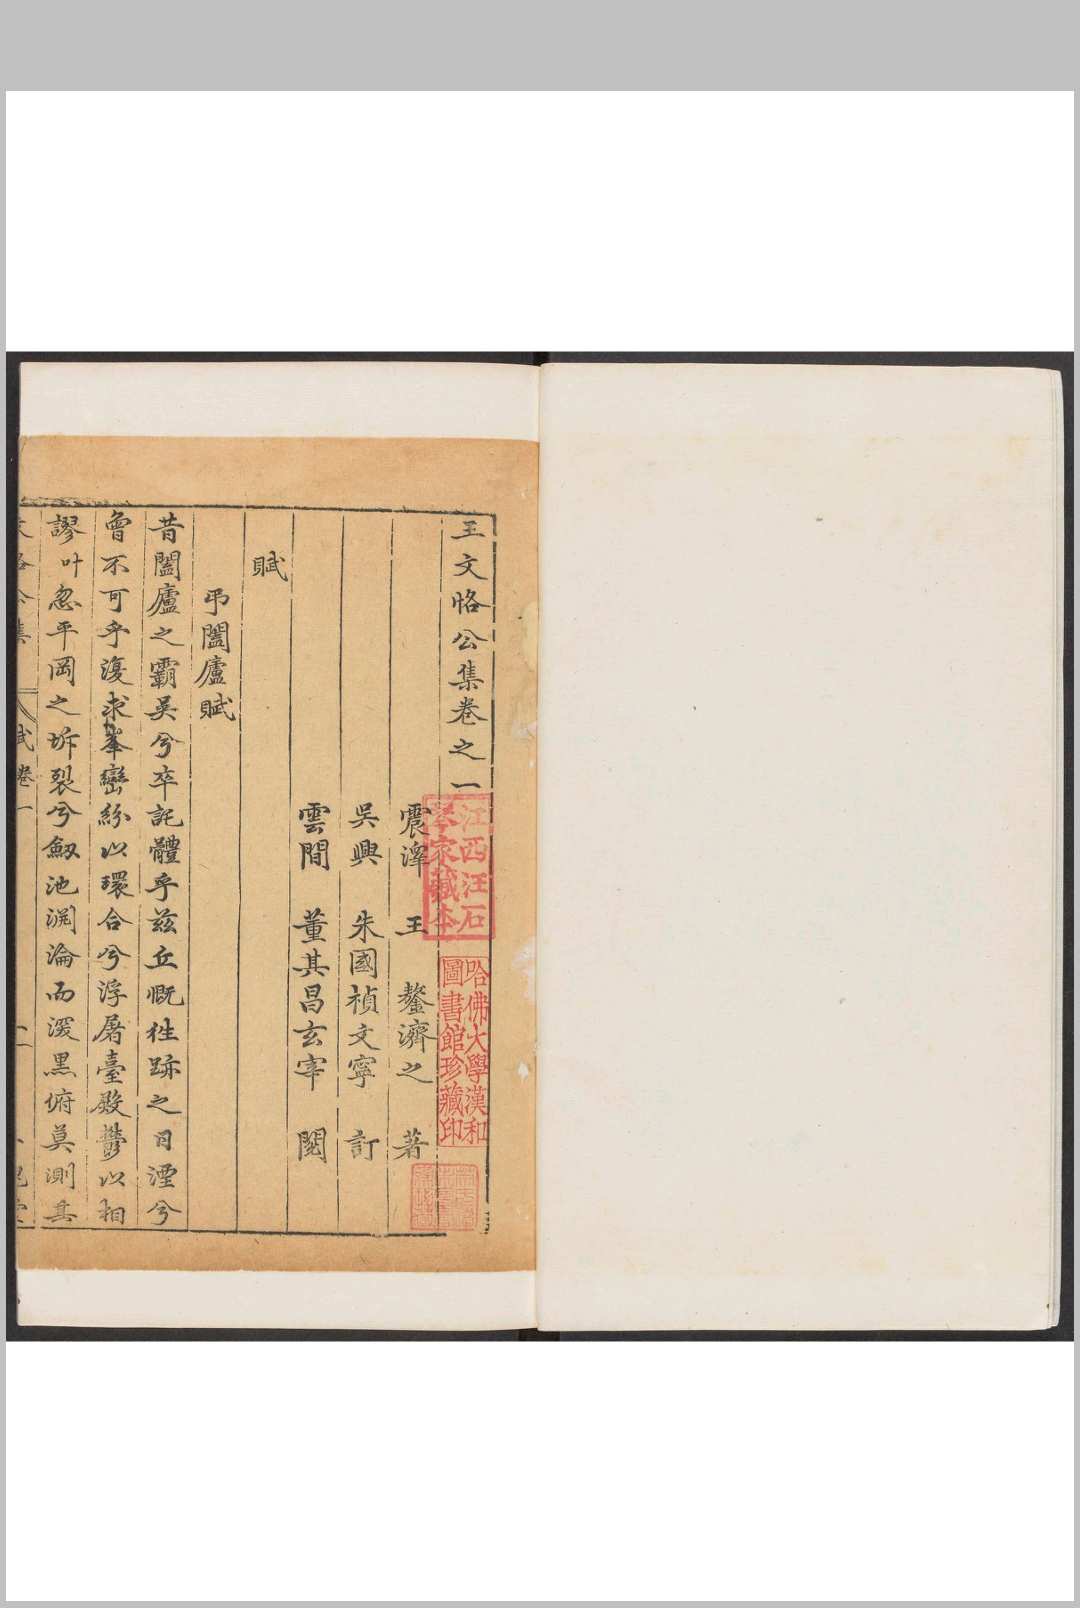 王文恪公集卷之一
震澤　王　鏊濟之　著
吳興　朱國禎文寧　訂
雲間　董其昌玄宰　閱
賦
弔闔廬賦
昔闔廬之霸吳兮卒託體乎茲丘慨往跡之日湮兮
曾不可乎復求峯巒紛以環合兮浮屠臺殿鬱以相
謬叶忽平岡之坼裂兮劔池泓淪而深黑俯莫測其
賦卷一
江西汪石
琴家藏本
哈佛大學漢和
圖書館珍藏印